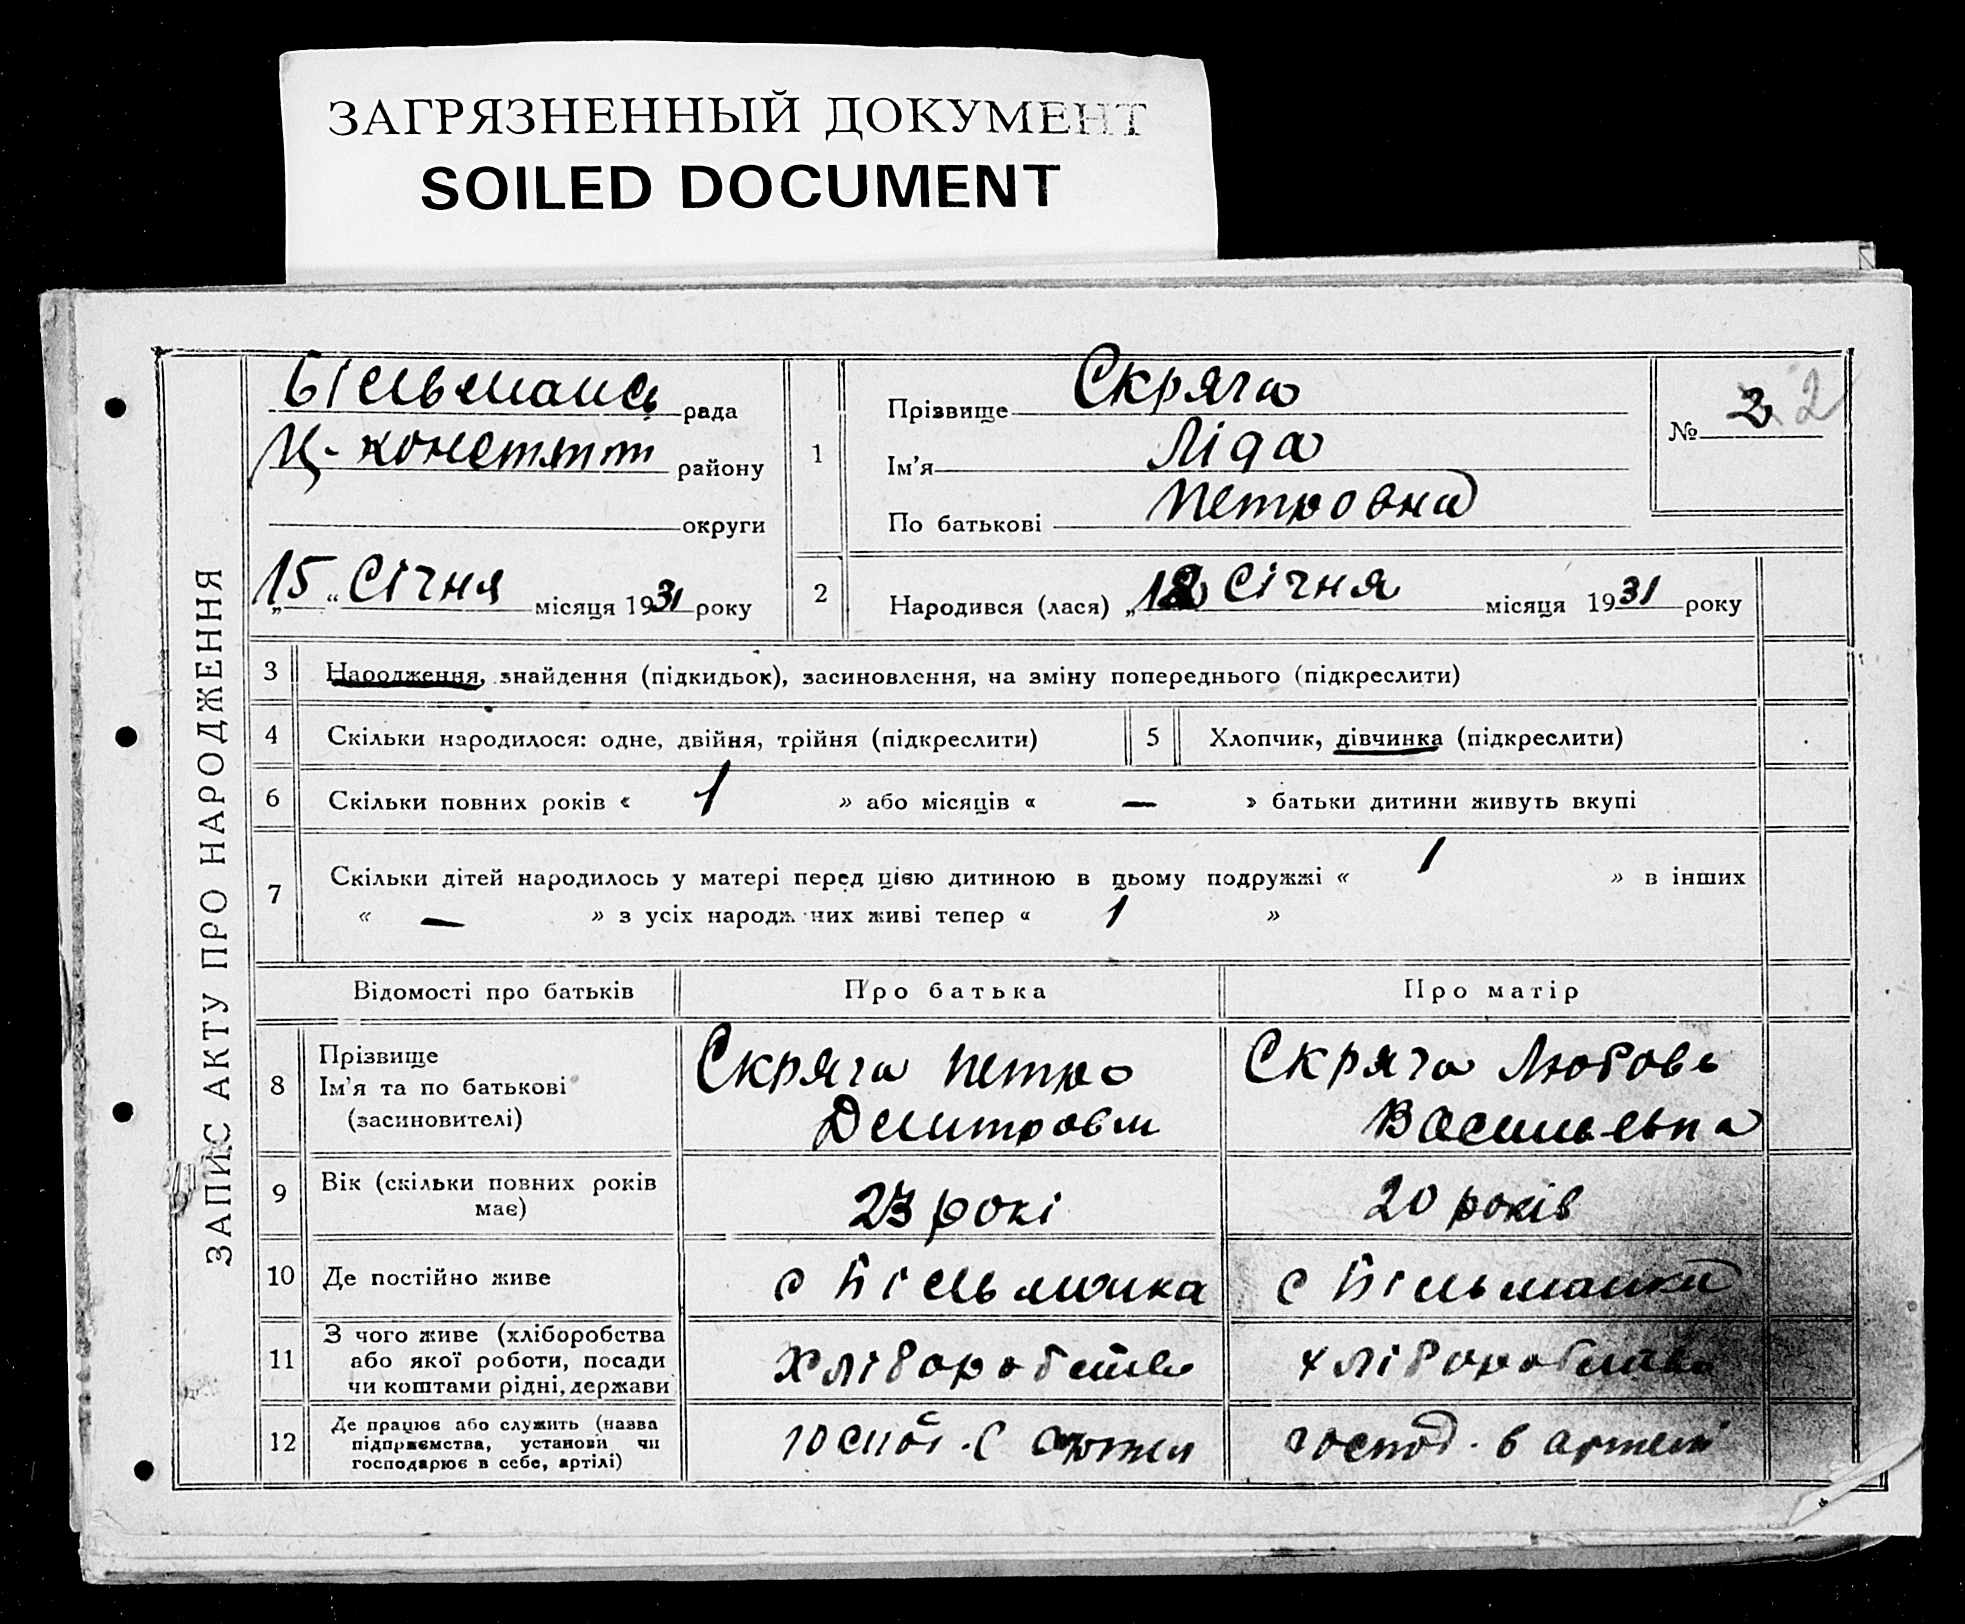 ЗАГРЯЗНЕННЫЙ ДОКУМЕНТ
SOILED DOCUMENT
ЗАПИС АКТУ ПРО НАРОДЖЕННЯ
Більмансь рада
Ц-констянт району
округи
„15“ Січня місяця 1931 року
1
Прізвище Скряга
Ім'я Ліда
По батькові Петровна
№ 2 2
2 Народився (лася) „12 Січня місяця 1931 року
3 Народження, знайдення (підкидьок), засиновлення, на зміну попереднього (підкреслити)
4 Скільки народилося: одне, двійня, трійня (підкреслити)
5 Хлопчик, дівчинка (підкреслити)
6 Скільки повних років « 1 » або місяців « — » батьки дитини живуть вкупі
7 Скільки дітей народилось у матері перед цією дитиною в цьому подружжі « 1 » в інших
« — » з усіх народж них живі тепер « 1 »
Відомості про батьків Про батька Про матір
8 Прізвище
Ім'я та по батькові
(засиновителі)
Скряга Петро
Дмитрови
Скряга Любовь
Васильевна
9 Вік (скільки повних років
має)
23 рокі
20 років
10 Де постійно живе
с Більманка
с Більманки
11 З чого живе (хліборобства
або якої роботи, посади
чи коштами рідні, держави
хліборобства
хліборобства
12 Де працює або служить (назва
підприємства, установи чи
господарює в себе, артілі)
господ. в артелі